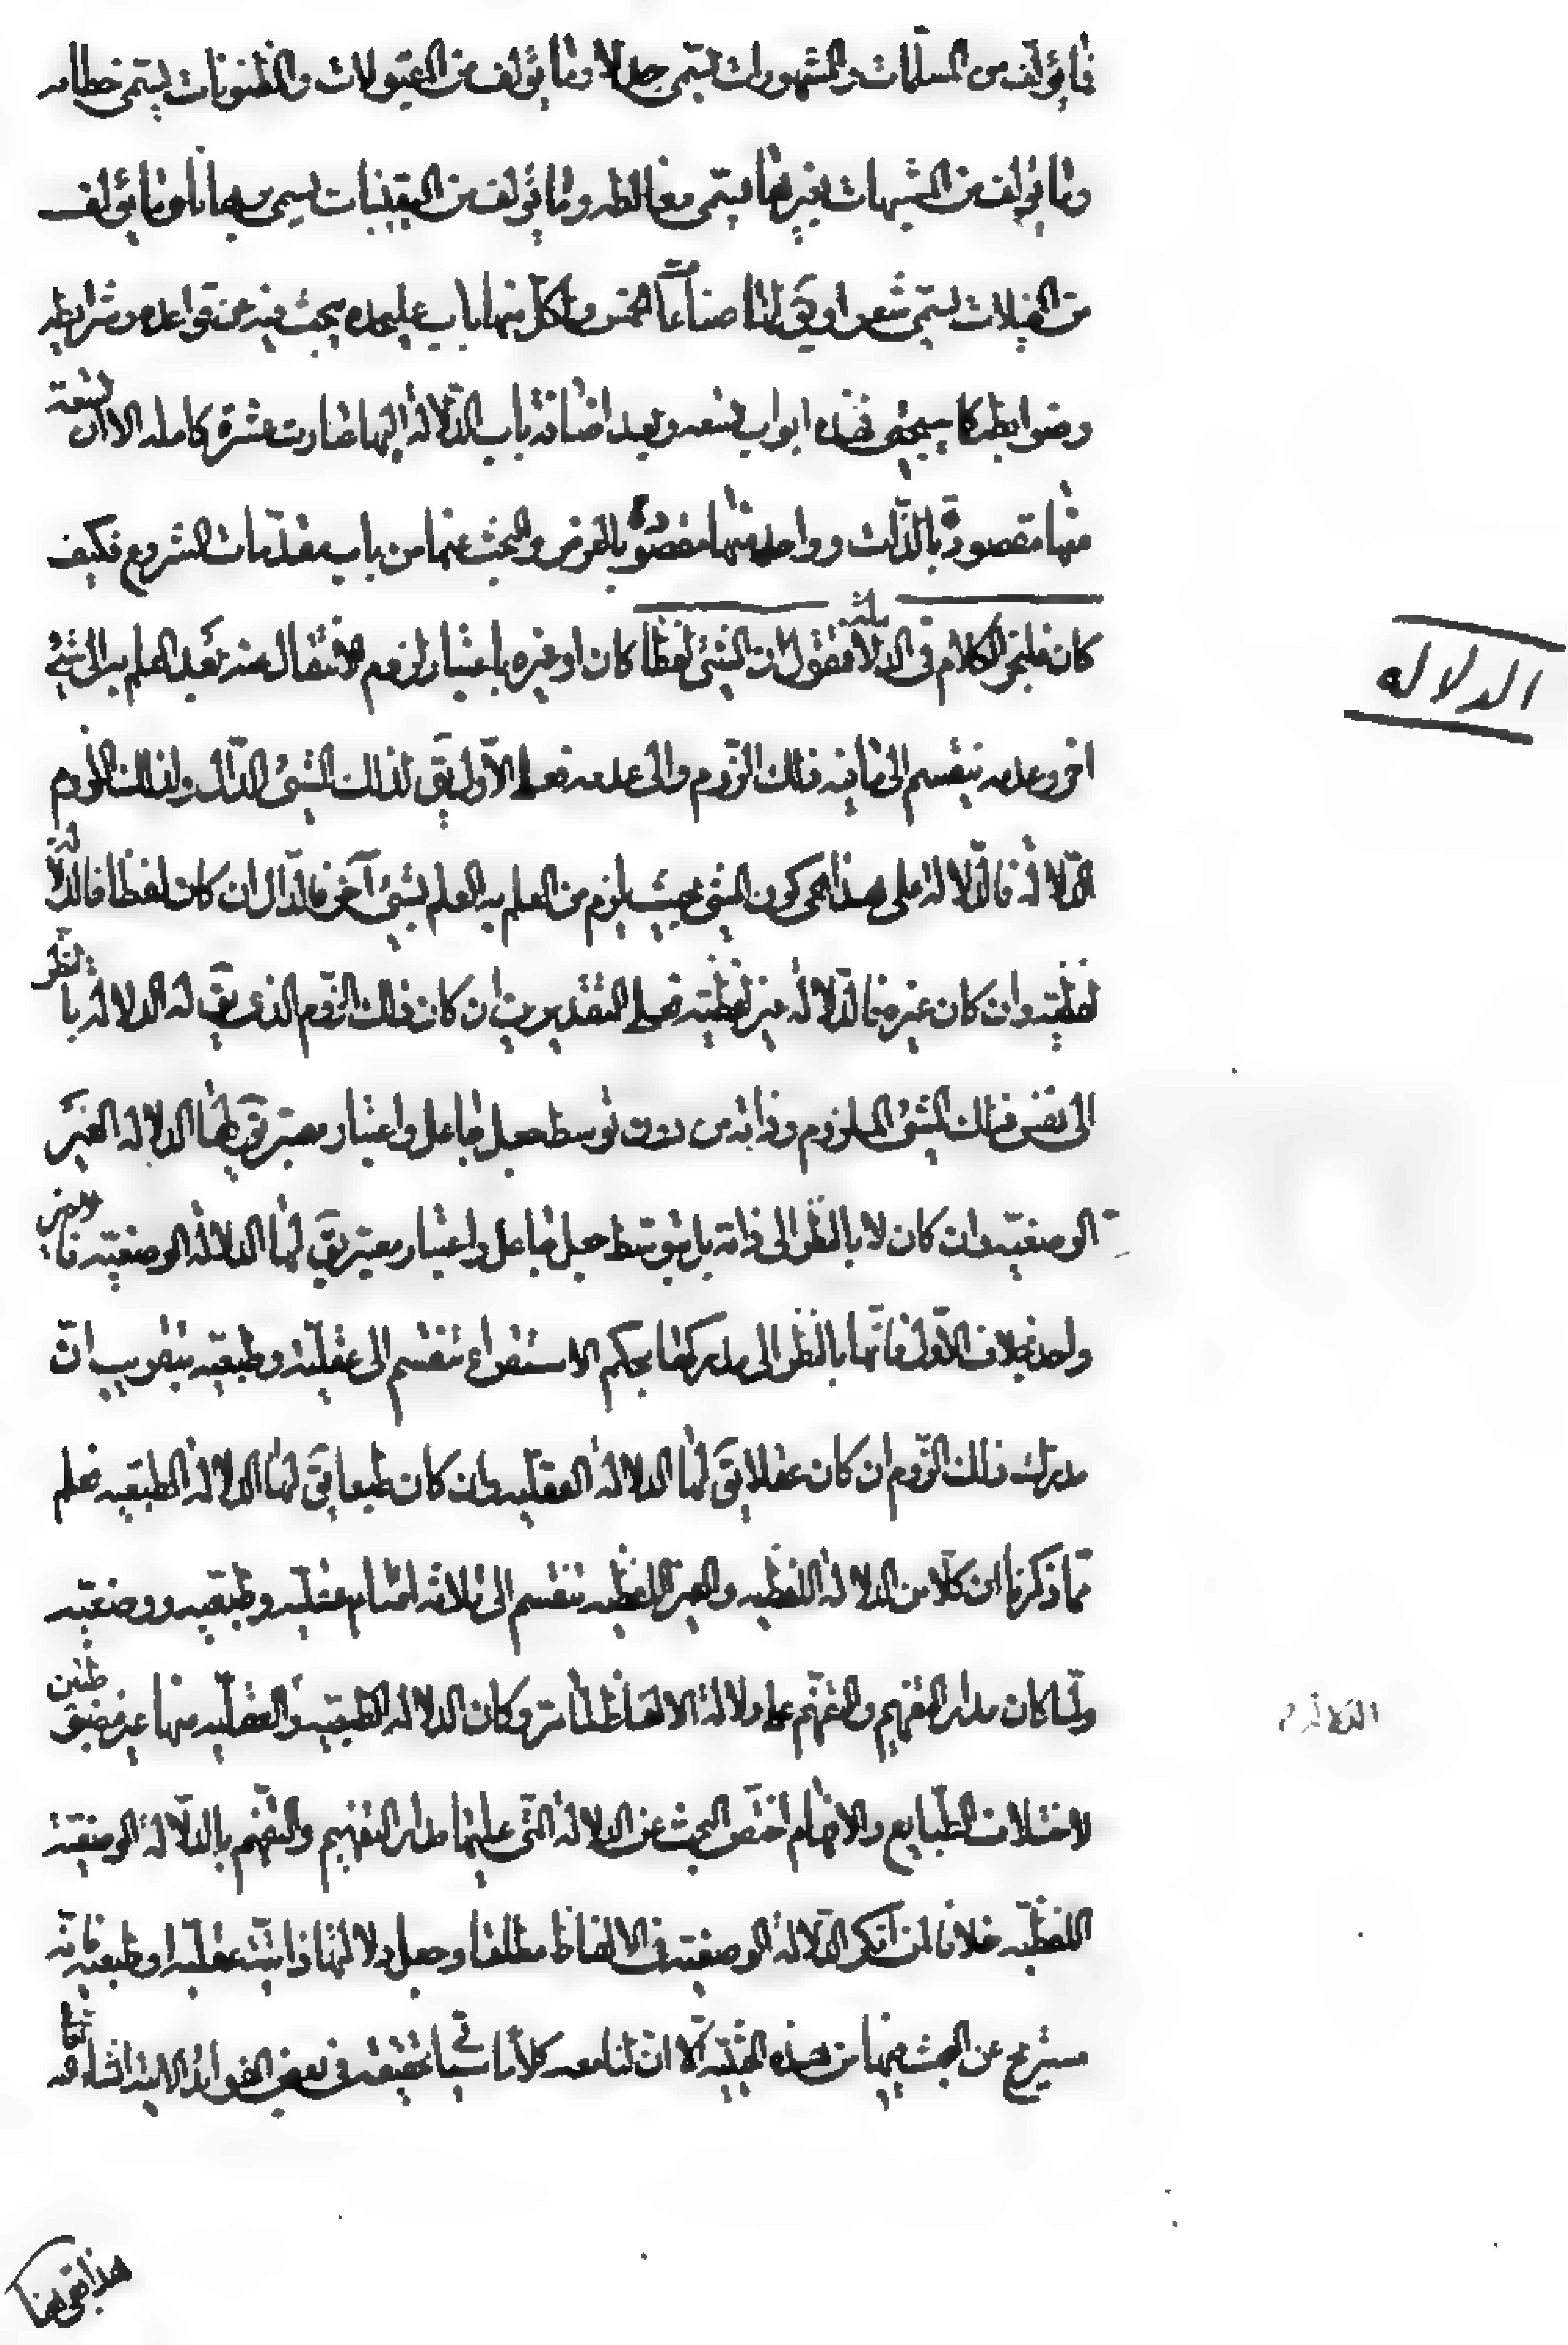 فما يؤلف من المسلّمات والمشهورات يسمّى جدلا وما يؤلف من المقبولات والمظنونات يسمّى خطابه
وما يؤلف من المشبهات بغيرها يسمّى مغالطه وما يؤلف من اليقينيات يسمى برهانا وما يؤلف
من المخيلات يسمّى شعرا ويق لها صناعات الخمس ولكل منها باب عليحده يبحث فيه عن قواعده وشرايطه
وضوابطه كما سيجئى فهذه ابواب تسعه وبعد اضافة باب الدّلالة اليها صارت عشرة كامله الا ان تسعة
منها مقصودة بالذّات وواحد منها مقصودة بالعرض والبحث عنها من باب مقدّمات الشروع فكيف
كان فلينجر الكلام فى الدلالة فنقول ان الشئ لفظا كان او غيره باعتبار لزوم الانتقال منه بعد العلم به الى شئ
اخر وعدمه ينقسم الى ما فيه ذلك اللزوم والى عدمه فعلى الاول يق لذلك الشئ الدّال ولذلك اللزوم
الدّلالة فالدّلالة على هذا هى كون الشئ بحيث يلزم من العلم به العلم بشئ آخر فالدّال ان كان لفظا فالدلالة
لفظيّه وان كان غيره فالدّلالة غير لفظيّه فعلى التقديرين ان كان ذلك اللزوم الذى يق له الدلالة بالنظر
الى نفس ذلك الشئ الملزوم وذاته من دون توسط جعل جاعل واعتبار معتبر يق لها الدلالة الغير
الوضعيّه وان كان لا بالنظر الى ذاته بل بتوسّط جعل جاعل واعتبار معتبر يق لها الدلالة الوضعيّه فالوضعى
واحد بخلاف الاوّل فانّها بالنظر الى مدركها بحكم الاستقراء تنقسم الى عقليّة وطبعيّه بتقريب انّ
مدرك ذلك اللزوم ان كان عقلا يق لها الدلالة العقليه وان كان طبعا يق لها الدلالة الطبعيه فعلم
ممّا ذكرنا ان كلّا من الدلالة اللفظيه والغير اللفظيه تنقسم الى ثلاثه اقسام عقليّه وطبعيه ووضعيّه
ولمّا كان مدار التفهيم والتفهّم على دلالة الالفاظ لما مر وكان الدلالة الطبعيه والعقليّه منها غير منضبطين
لاختلاف الطّبايع والافهام اختصّ البحث عن الدلالة التّى عليها مدار التفهيم والتفهم بالدّلالة الوضعيّة
اللفظيّه خلافا لمن انكر الدّلالة الوضعيّه فى الالفاظ مطلقا وجعل دلالتها ذاتيّه عقليّه او طبعيّه فانه
مستريح عن البحث فيها من هذه الحيثيّه الّا ان لنا معه كلاما سياتى تحقيقه فى بعض الفوائد الاتية انشاء الله تعالى
هذا تقى هنا
الدلاله